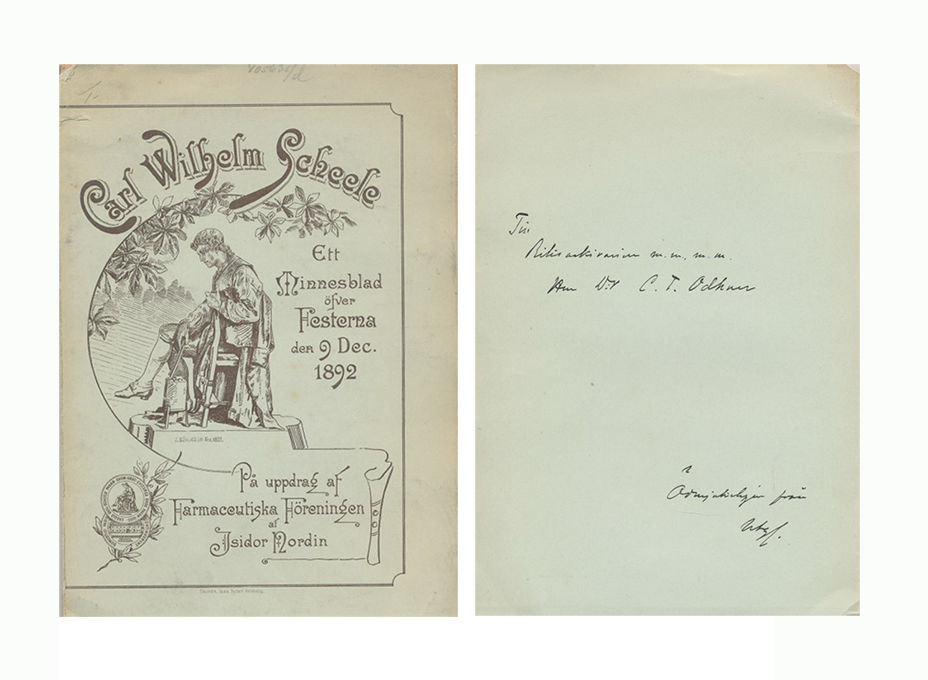 Carl Wilhelm Scheele
Ett
Minnesblad
öfver
Festerna
den 9 Dec.
1892
På uppdrag af
Farmaceutiska Föreningen
af
Isidor Nordin
Till
Riksarkivarien m.m., m.m.
Herr D:r C. T. Odhner
Ödmjukligen från
Utgf.